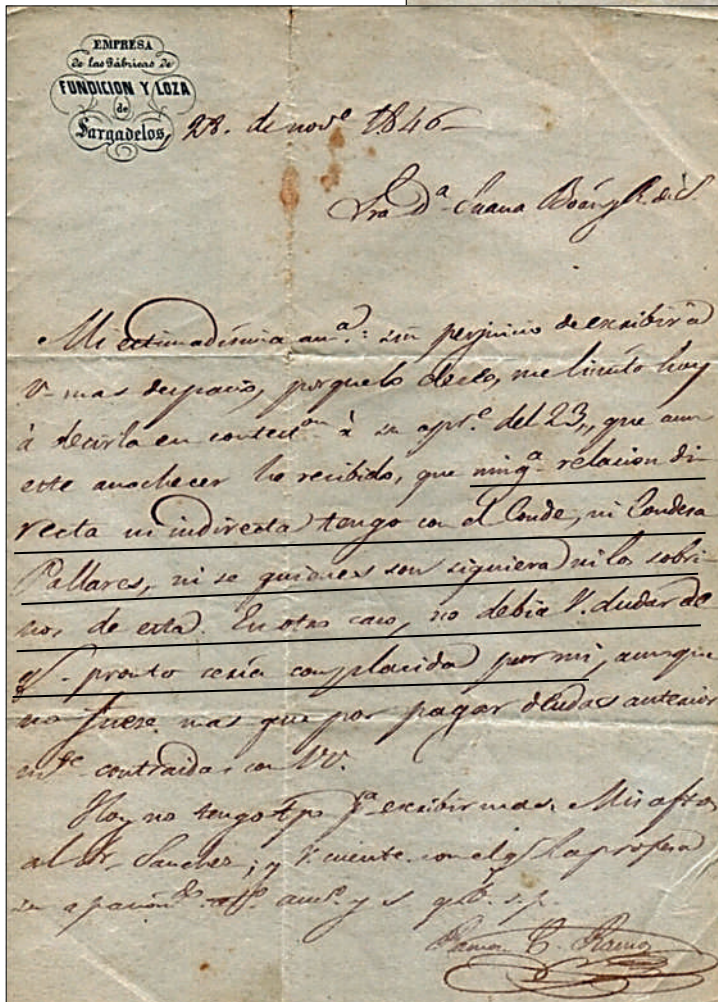 EMPRESA
de las Fábricas de
FUNDICION Y LOZA
de
Sargadelos,
28. de novᵉ 1846
Sra Dª Juana
Mi estimadísima amª.: sin perjuicio de escribir á
V. mas despacio, porque lo deseo, me limito hoy
á decirla en contestᵒⁿ á su aprᵉ. del 23,, que aun
este anochecer he recibido, que ningª relacion di-
recta ni indirecta tengo con el Conde, ni Condesa
Pallares, ni se quienes son siquiera ni los sobri-
nos de esta. En otro caso, no debia V. dudar de
q. pronto sería complacida por mi, aunque
no fuese mas que por pagar deudas anterior
mᵗᵉ contraidas con VV.
Hoy no tengo tpo pª escribir mas. Mis aftos
al Sr. Sanchez; y V. cuente con el q. la profesa
su amᵒ. y s. q. b. s. p.
Ramon Ramos